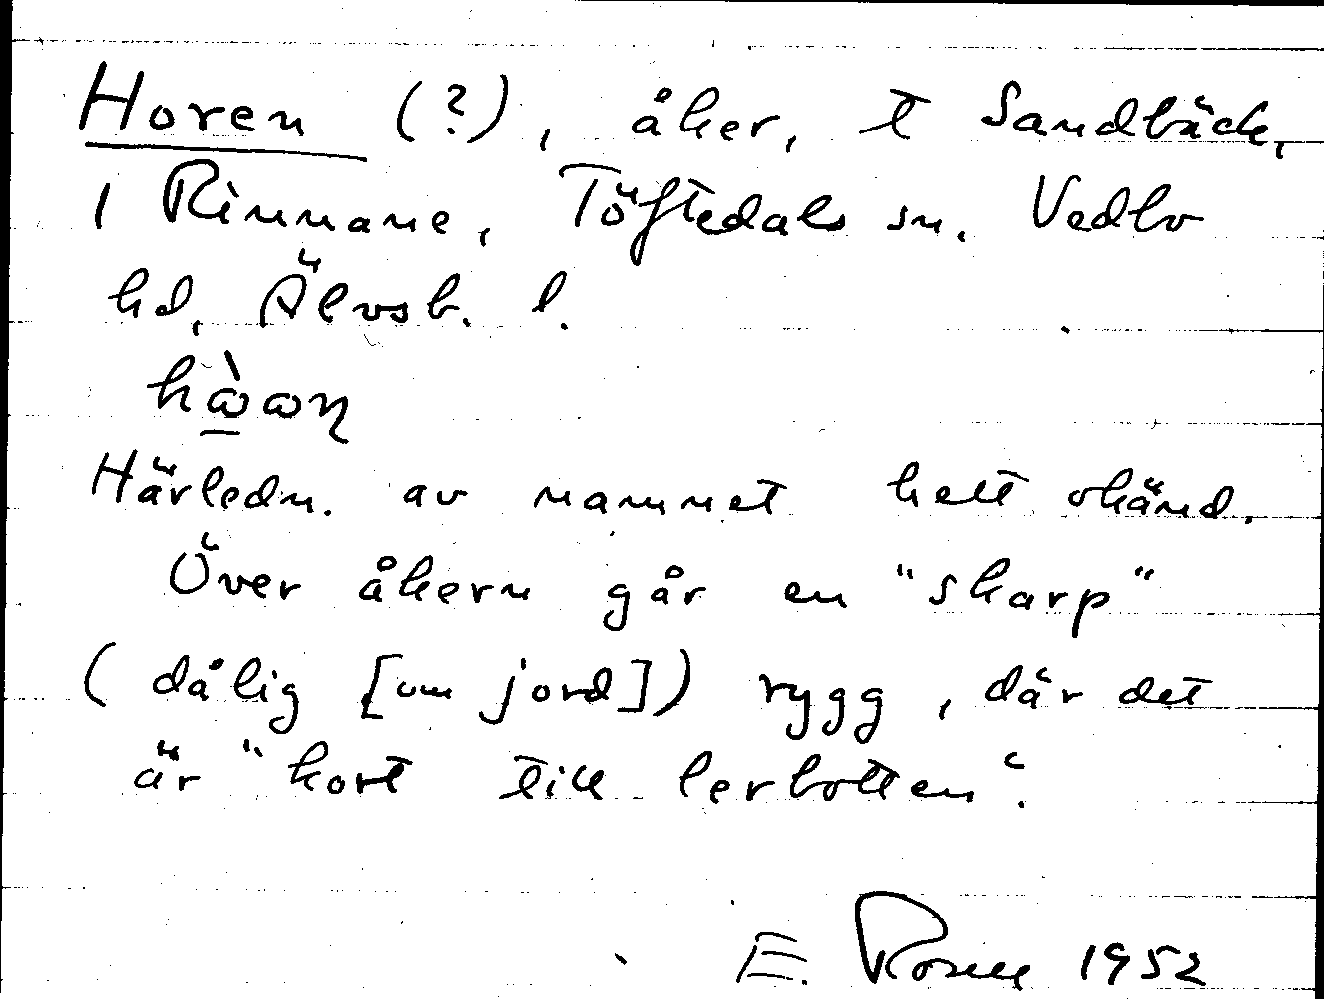 Horen (?), åker, t Sandbäck,
1 Rinnane, Töftedals sn. Vedbo
hd, Älvsb. l.
Härledn. av namnet helt okänd.
Över åkern går en "skarp"
(dålig [om jord]) rygg, där det
är "kort till lerbotten".
E. Rosell 1952